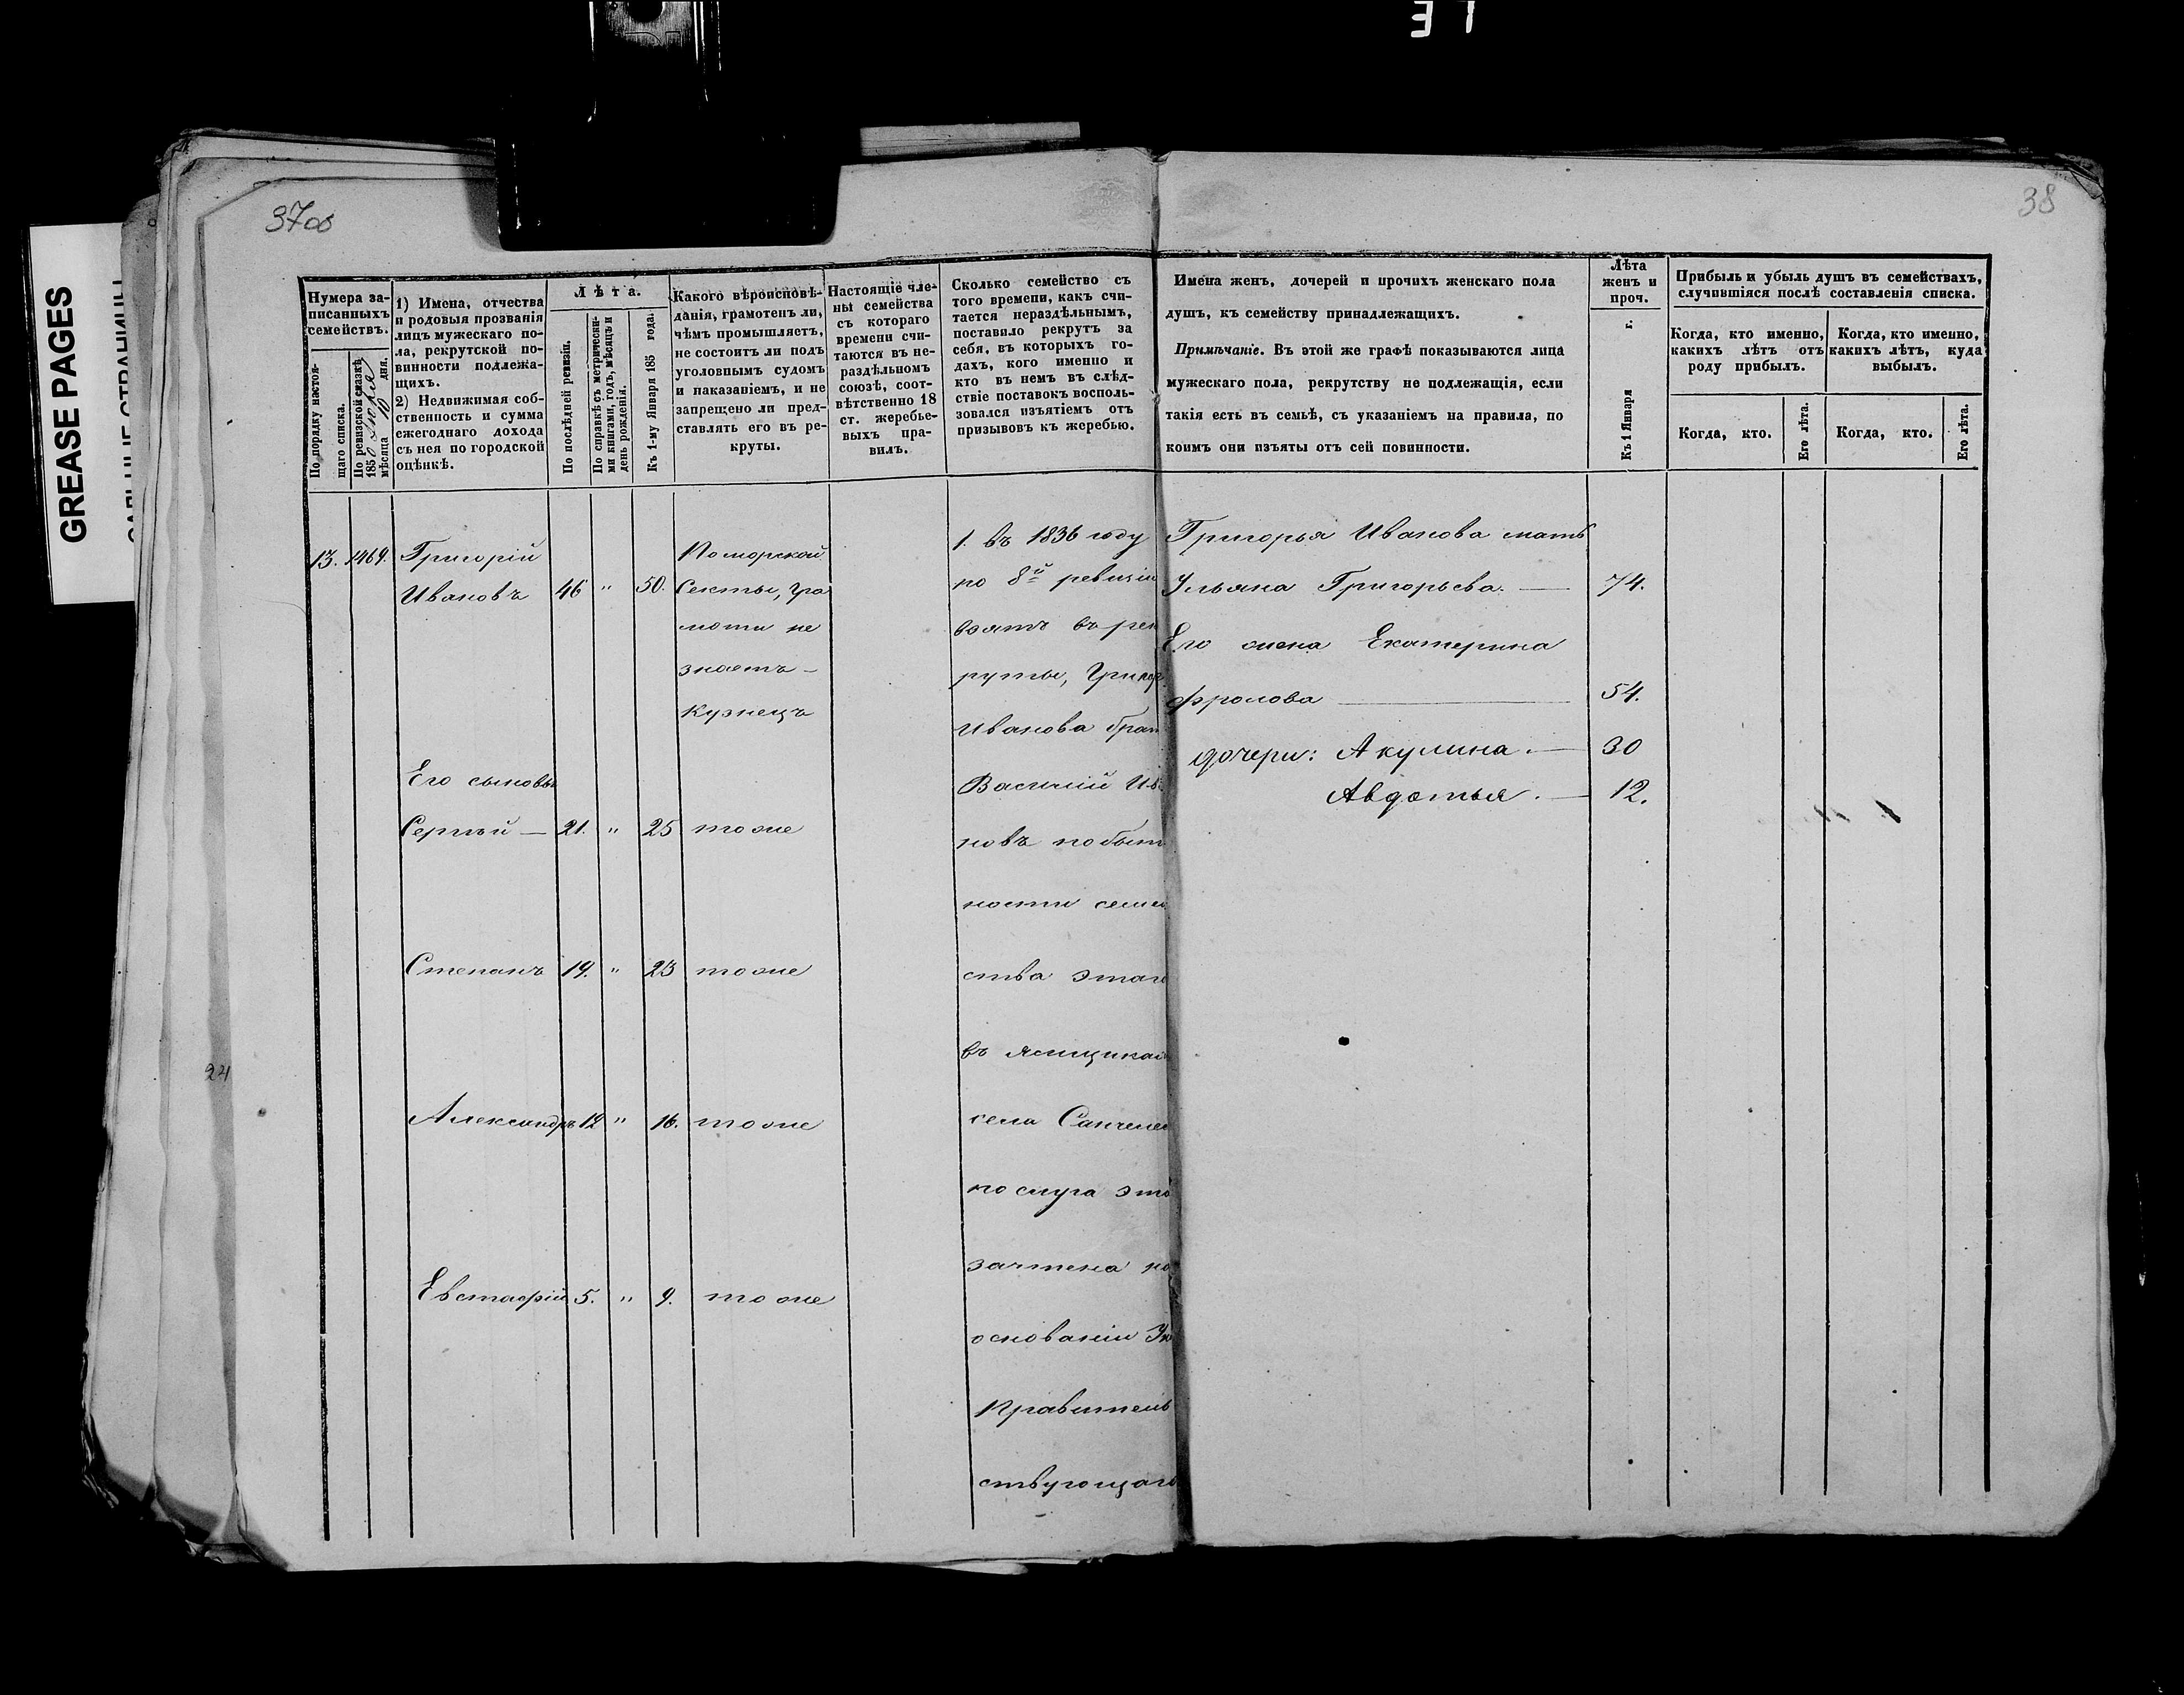 GREASE PAGES
37об
38
Нумера за-
писанныхъ
семействъ.
По порядку настоя-
щаго списка.
По ревизской сказкѣ
1850 Іюня
мѣсяца 10 дня.
1) Имена, отчества
и родовыя прозванія
лицъ мужескаго по-
ла, рекрутской по-
винности подлежа-
щихъ.
2) Недвижимая соб-
ственность и сумма
ежегоднаго дохода
съ нея по городской
оцѣнкѣ.
Лѣта.
По послѣдней ревизіи.
По справкѣ съ метрически-
ми книгами, годъ, мѣсяцъ и
день рожденія.
Къ 1-му Января 185 года.
Какого вѣроисповѣ-
данія, грамотенъ ли,
чѣмъ промышляетъ,
не состоитъ ли подъ
уголовнымъ судомъ
и наказаніемъ, и не
запрещено ли пред-
ставлять его въ ре-
круты.
Настоящіе чле-
ны семейства
съ котораго
времени счи-
таются въ не-
раздѣльномъ
союзѣ, соот-
вѣтственно 18
ст. жеребье-
выхъ пра-
вилъ.
Сколько семейство съ
того времени, какъ счи-
тается нераздѣльнымъ,
поставило рекрутъ за
себя, въ которыхъ го-
дахъ, кого именно и
кто въ немъ въ слѣд-
ствіе поставокъ восполь-
зовался изъятіемъ отъ
призывовъ къ жеребью.
Имена женъ, дочерей и прочихъ женскаго пола
душъ, къ семейству принадлежащихъ.
Примѣчаніе. Въ этой же графѣ показываются лица
мужескаго пола, рекрутству не подлежащія, если
такія есть въ семьѣ, съ указаніемъ на правила, по
коимъ они изъяты отъ сей повинности.
Лѣта
женъ и
проч.
Къ 1 Января г.
Прибыль и убыль душъ въ семействахъ,
случившіяся послѣ составленія списка.
Когда, кто именно,
какихъ лѣтъ отъ
роду прибылъ.
Когда, кто именно,
какихъ лѣтъ, куда
выбылъ.
Когда, кто.
Его лѣта.
Когда, кто.
Его лѣта.
13. 1469. Григорій
Ивановъ 46 " 50.
Поморской
Секты, гра
моти не
знаетъ —
Кузнецъ
Его сыновья
Сергѣй — 21. " 25 тоже
Степанъ 19. " 23 тоже
Александръ 12 " 16. тоже
Евстафій 5. " 9. тоже
1. въ 1836 году
по 8й ревизіи
взятъ въ рек
руты, Григор
Иванова брат
Василій Ив
новъ по быт
ности семей
ства этаго
въ
села
но слуга это
зачтена на
основаніи Ук
Правитель
ствующаго
Григорья Иванова мать
Ульяна Григорьева. — 74.
Его жена Екатерина
Фролова — 54.
дочери: Акулина. — 30
Авдотья. — 12.
24